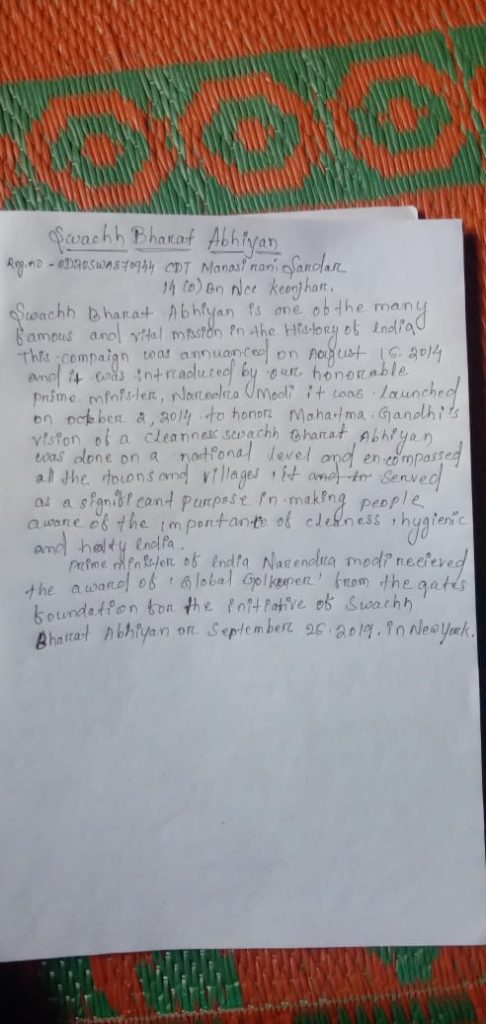 Swachh Bharat Abhiyan
Reg.no - OD20SWA570944 CDT Manasi rani Sardar
14 (O) Bn Ncc keonjhar.
Swachh Bharat Abhiyan is one ob the many
bamous and vital mission in the History ob India
This compaign was annuanced on August 15. 2014
and it was intraduced by our honorable
prime minister, Narendra Modi it was launched
on octpber 2, 2014 to honor Mahatma Gandhi's
vision ob a cleanness swachh Bharat Abhiyan
was done on a national level and encompassed
all the towns and villages . it Served
as a signibicant purpose in making people
aware ob the importante ob clenness , hygienic
and healty India.
Prime minister ob India Narendra modi recieved
the award ob 'Global Golkeeper' brom the gates
boundation bor the initiative ob Swachh
Bharat Abhiyan on September 25. 2019. in New York.